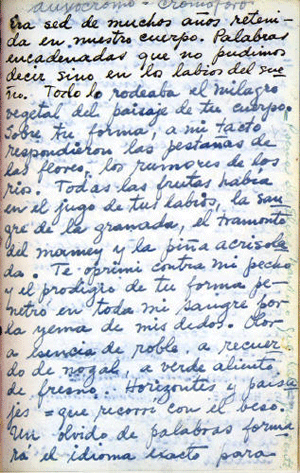 auxocromo - Cromoforo
Era sed de muchos años reteni-
da en nuestro cuerpo. Palabras
encadenadas que no pudimos
decir sino en los labios del sue-
ño. Todo lo rodeaba el milagro
vegetal del paisaje de tu cuerpo.
Sobre tu forma, a mi tacto
respondieron las pestañas de
las flores, los rumores de los
rios. Todas las frutas había
en el jugo de tus labios, la san
gre de la granada, el tramonto
del mamey y la piña acrisola
da. Te oprimi contra mi pecho
y el prodigio de tu forma pe-
netró en toda mi sangre por
la yema de mis dedos. Olor
a esencia de roble. a recuer
do de nogal, a verde aliento
de fresno. Horizontes y paisa
jes = que recorrí con el beso.
Un olvido de palabras forma
rá el idioma exacto para